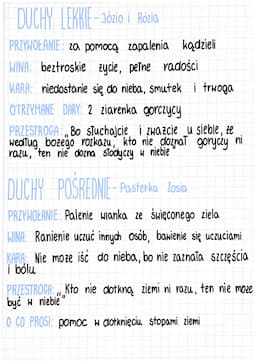 DUCHY LEKKIE - Józio i Rózia
PRZYWOŁANIE: za pomocą zapalenia kądzieli
WINA: beztroskie życie, pełne radości
KARA: niedostanie się do nieba, smutek i trwoga
OTRZYMANE DARY: 2 ziarenka gorczycy
PRZESTROGA: „Bo słuchajcie i zważcie u siebie, że
według bożego rozkazu, kto nie doznał goryczy ni
razu, ten nie dozna słodyczy w niebie"
DUCHY POŚREDNIE - Pasterka Zosia
PRZYWOŁANIE: Palenie wianka ze święconego ziela
WINA: Ranienie uczuć innych osób, bawienie się uczuciami
KARA: Nie może iść do nieba, bo nie zaznała szczęścia
i bólu
PRZESTROGA: „Kto nie dotknął ziemi ni razu, ten nie może
być w niebie"
O CO PROSI: pomoc w dotknięciu stopami ziemi